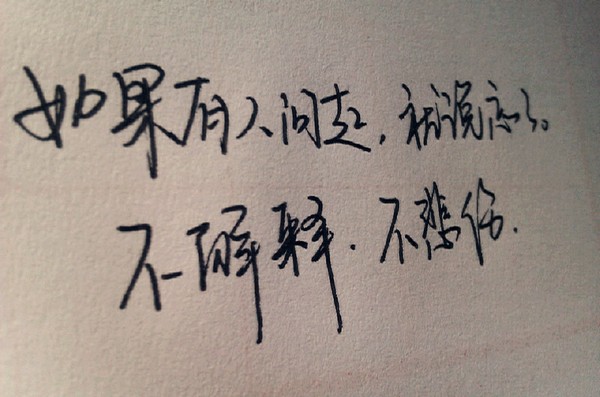 如果有人问起,就说忘了。
不解释.不悲伤.